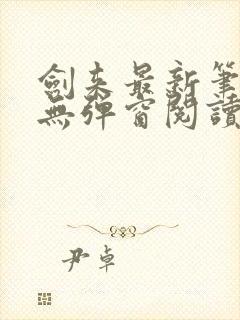 劍來最新筆
無彈窗閱讀
尹卓